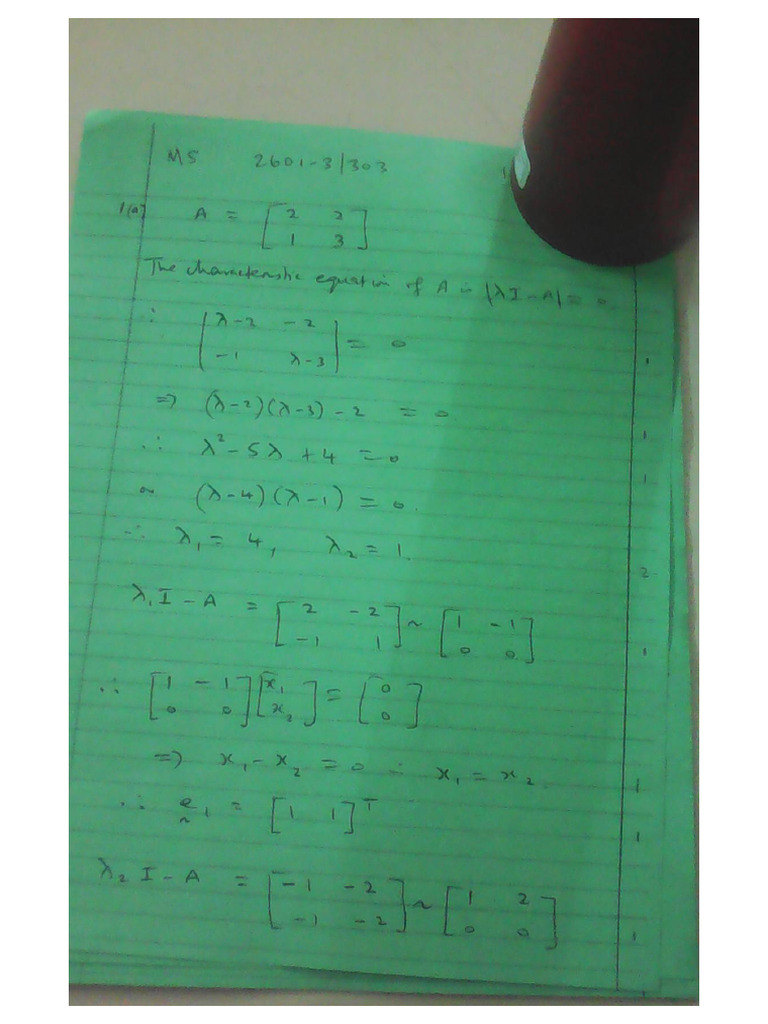 MS 2601-3/303
1(a) A = [2 2
1 3]
The characteristic equation of A is |λI-A| = 0
∴ |λ-2 -2
-1 λ-3| = 0 1
=> (λ-2)(λ-3) - 2 = 0 1
∴ λ² - 5λ + 4 = 0 1
or (λ-4)(λ-1) = 0.
∴ λ₁ = 4, λ₂ = 1. 2
λ₁I - A = [2 -2
-1 1] ~ [1 -1
0 0] 1
∴ [1 -1
0 0] [x₁
x₂] = [0
0]
=> x₁ - x₂ = 0 ∴ x₁ = x₂. 1
∴ e₁ = [1 1]ᵀ 1
~
λ₂I - A = [-1 -2
-1 -2] ~ [1 2
0 0] 1